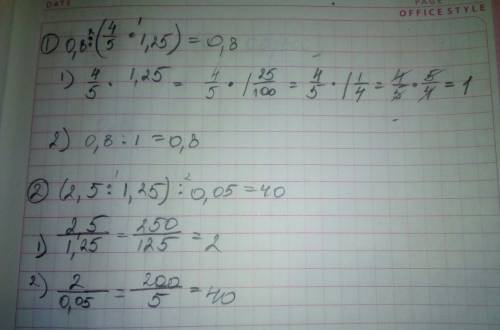 DATE
PAGE
OFFICE STYLE
① 0,8 :² (4/5 ·¹ 1,25) = 0,8
1) 4/5 · 1,25 = 4/5 · 1 25/100 = 4/5 · 1 1/4 = 4/5 · 5/4 = 1
2) 0,8 : 1 = 0,8
② (2,5 :¹ 1,25) :² 0,05 = 40
1) 2,5/1,25 = 250/125 = 2
2) 2/0,05 = 200/5 = 40